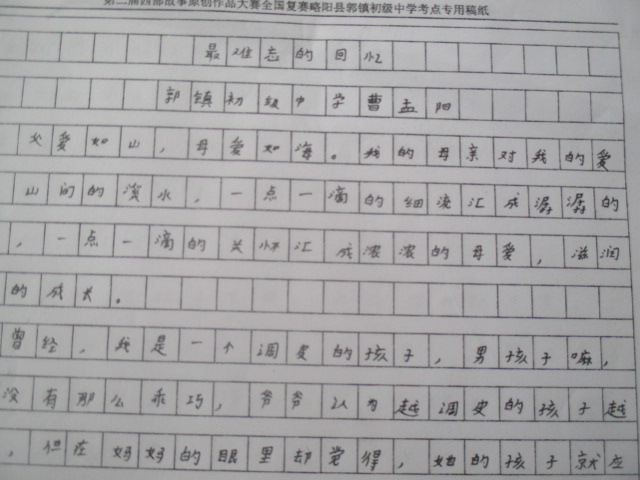 第二届西部故事原创作品大赛全国复赛略阳县郭镇初级中学考点专用稿纸
最难忘的回忆
郭镇初级中学曹孟阳
父爱如山，母爱如海。我的母亲对我的爱
山间的溪水，一点一滴的细流汇成潺潺的
，一点一滴的关怀汇成浓浓的母爱，滋润
的成长。
曾经，我是一个调皮的孩子，男孩子嘛，
没有那么乖巧，爷爷认为越调皮的孩子越
，但在妈妈的眼里却觉得，她的孩子就应